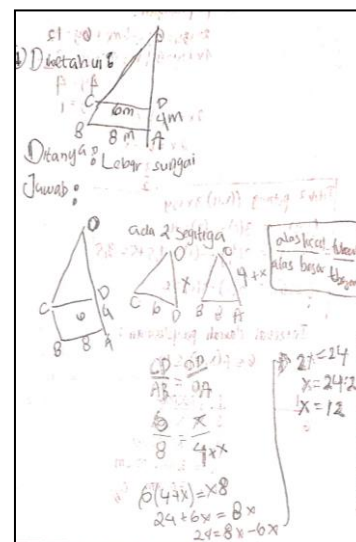 1) Diketahui :
C 6m D
4m
B 8m A
Ditanya : Lebar sungai
Jawab :
O
ada 2 segitiga
O O
x 4+x
C 6 D B 8 A
C 6 D
4
B 8 A
alas kecil
alas besar
CD = OD
AB OA
6 = x
8 4+x
6(4+x) = x8
24+6x = 8x
24 = 8x - 6x
2x = 24
x = 24:2
x = 12